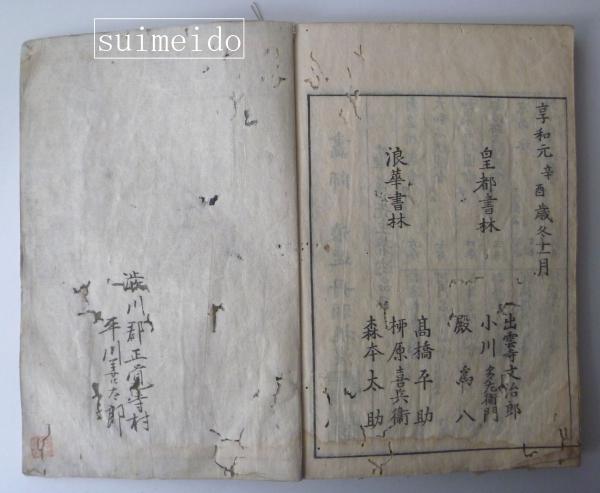 suimeido
享和元辛酉歳冬十一月
皇都書林
出雲寺文治郎
小川多左衛門
殿為八
浪華書林
髙橋平助
柳原喜兵衛
森本太助
澁川郡正覚寺村
平川善太郎